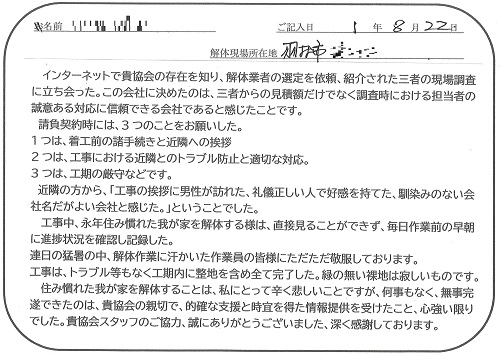 お名前 ご記入日 1 年 8 月 22 日
解体現場所在地 羽村市
インターネットで貴協会の存在を知り、解体業者の選定を依頼、紹介された三者の現場調査
に立ち会った。この会社に決めたのは、三者からの見積額だけでなく調査時における担当者の
誠意ある対応に信頼できる会社であると感じたことです。
請負契約時には、3つのことをお願いした。
1つは、着工前の諸手続きと近隣への挨拶
2つは、工事における近隣とのトラブル防止と適切な対応。
3つは、工期の厳守などです。
近隣の方から、「工事の挨拶に男性が訪れた、礼儀正しい人で好感を持てた、馴染みのない会
社名だがよい会社と感じた。」ということでした。
工事中、永年住み慣れた我が家を解体する様は、直接見ることができず、毎日作業前の早朝
に進捗状況を確認し記録した。
連日の猛暑の中、解体作業に汗かいた作業員の皆様にただただ敬服しております。
工事は、トラブル等もなく工期内に整地を含め全て完了した。縁の無い裸地は寂しいものです。
住み慣れた我が家を解体することは、私にとって辛く悲しいことですが、何事もなく、無事完
遂できたのは、貴協会の親切で、的確な支援と時宜を得た情報提供を受けたこと、心強い限り
でした。貴協会スタッフのご協力、誠にありがとうございました、深く感謝しております。